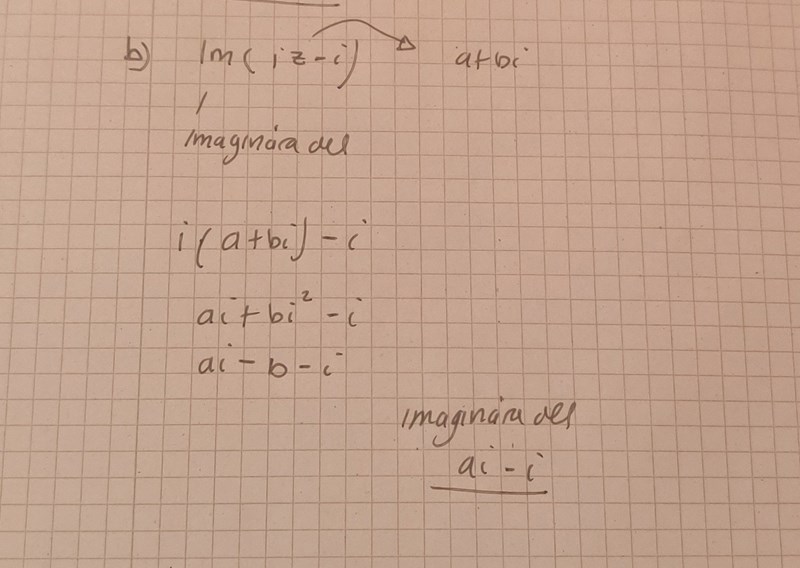 b) Im( iz - i) a+bi
Imaginära del
i(a+bi) - i
ai + bi² - i
ai - b - i
Imaginära del
ai - i